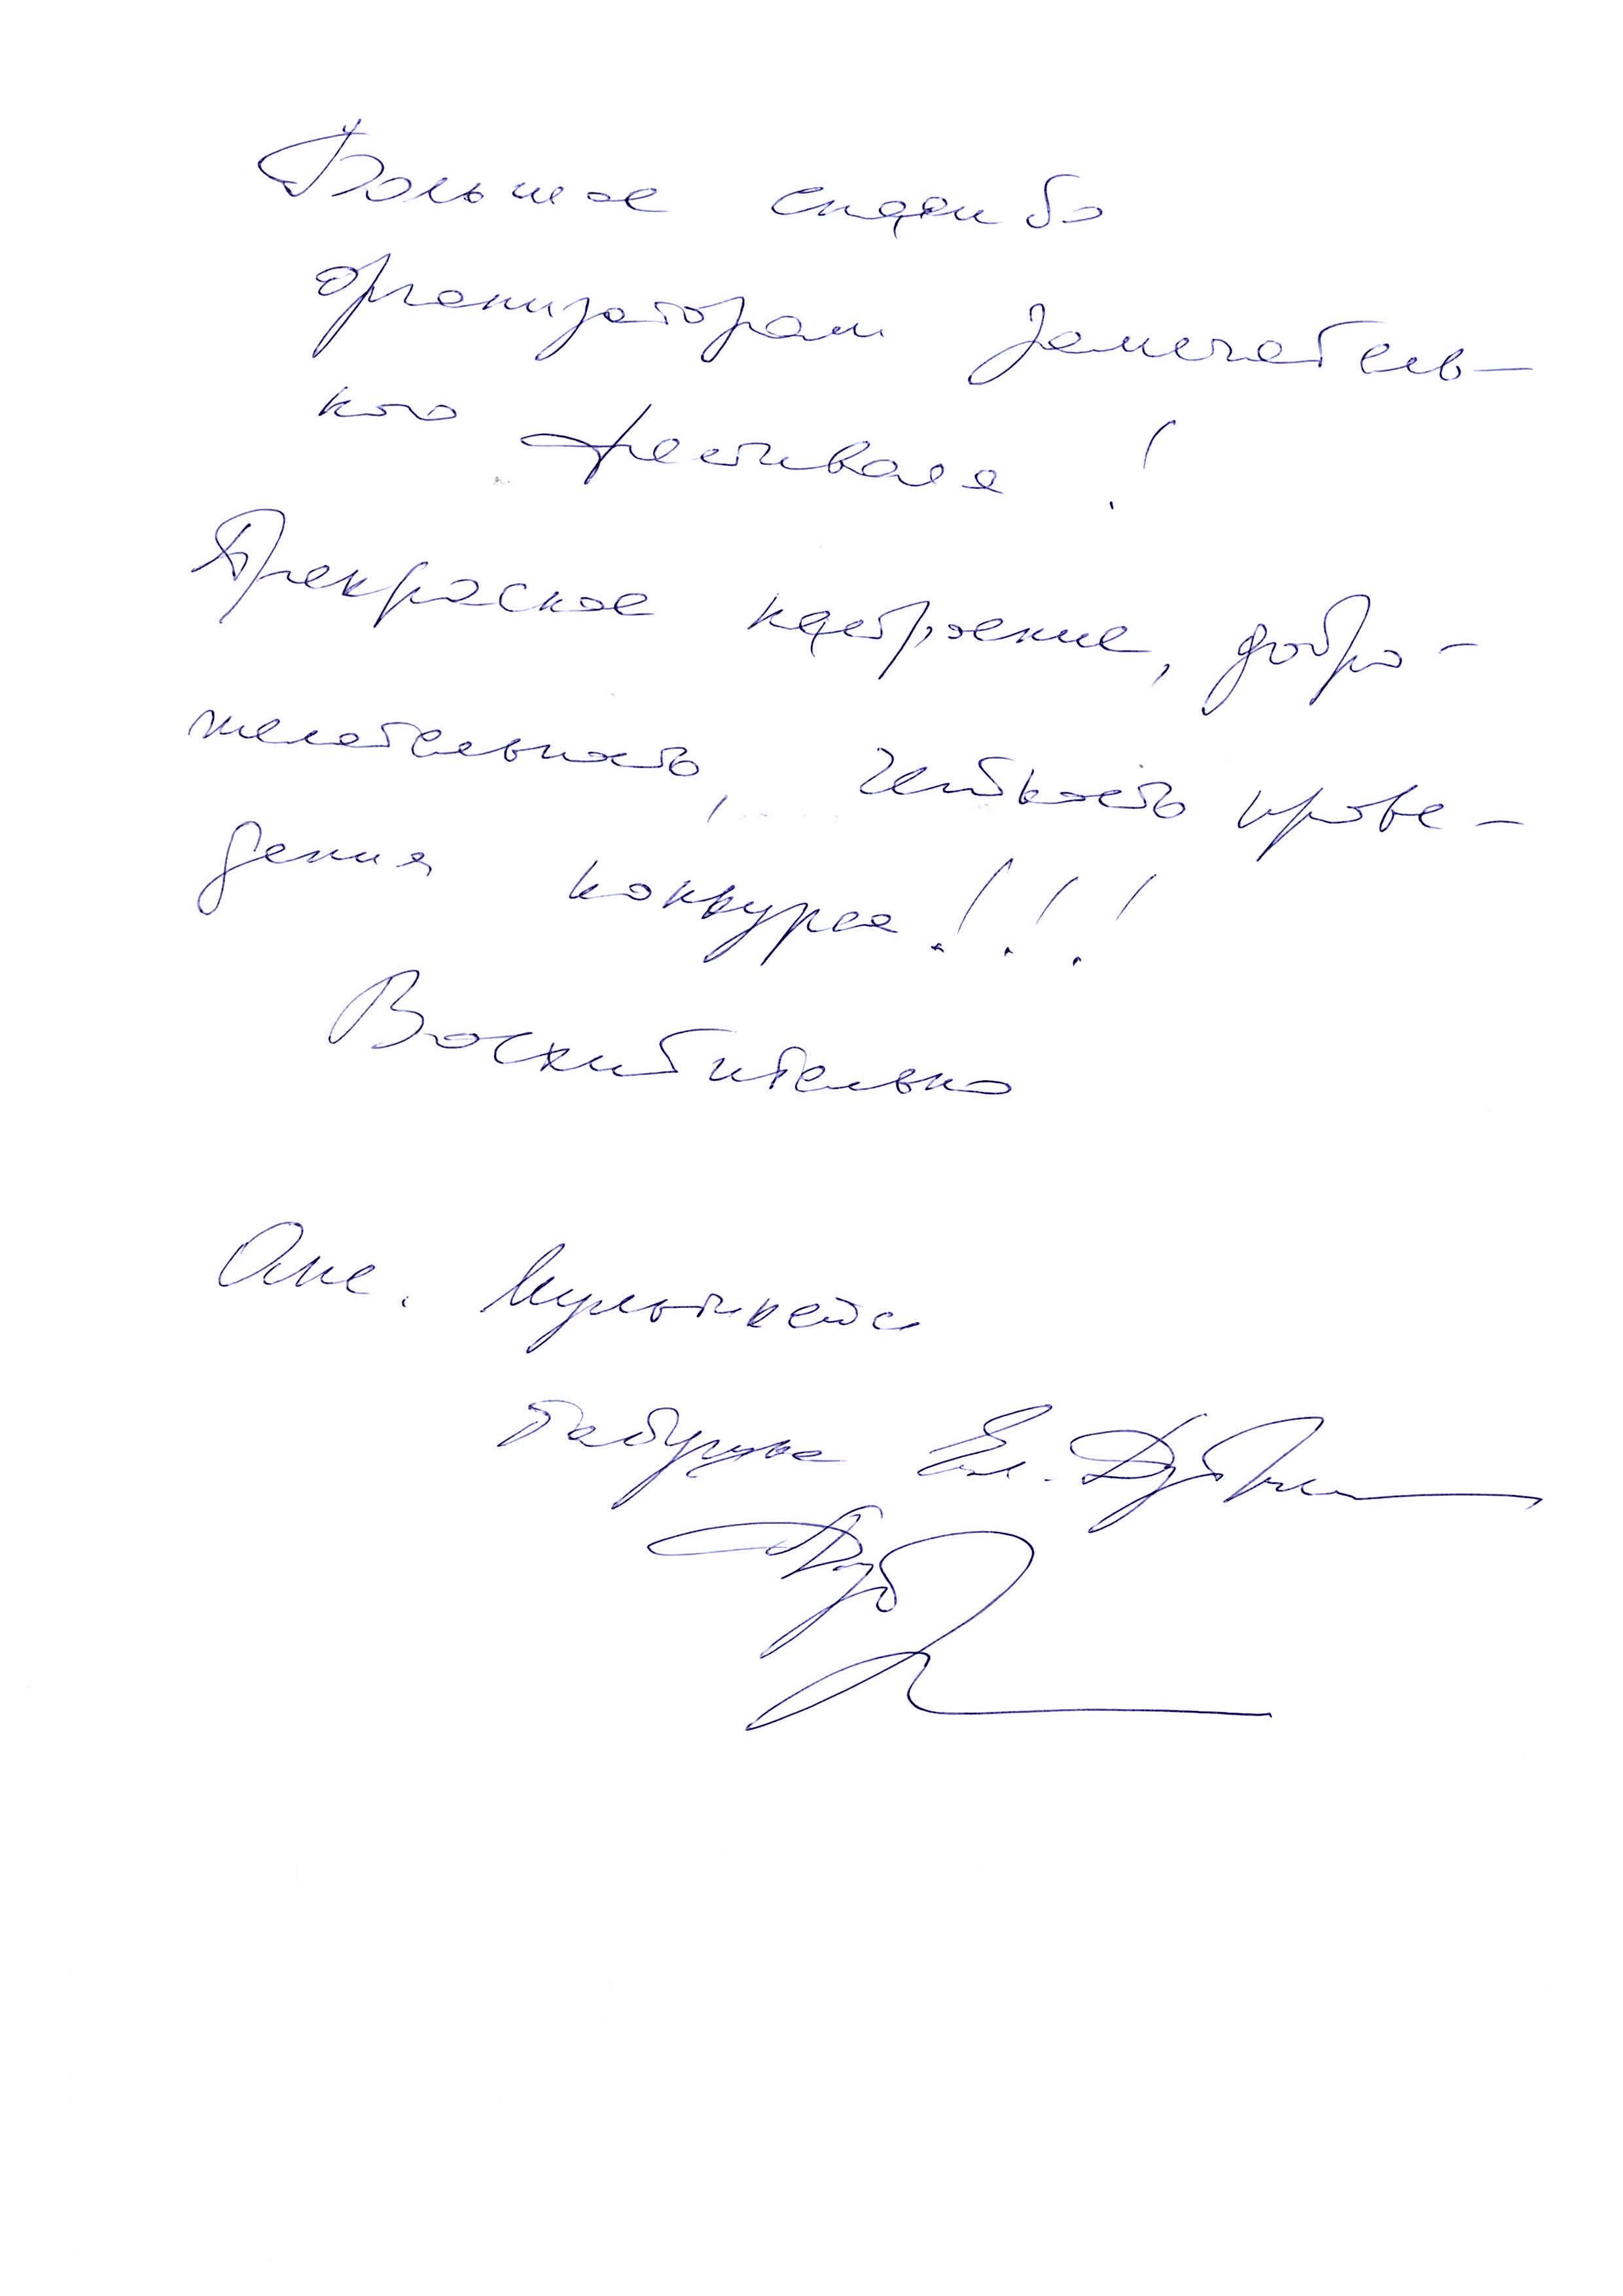 Большое спасибо
организаторам замечатель-
ного фестиваля!
Прекрасное настроение, добро-
желательность, четкость прове-
дения конкурса!!!
Восхитительно
Анс.
Ел.